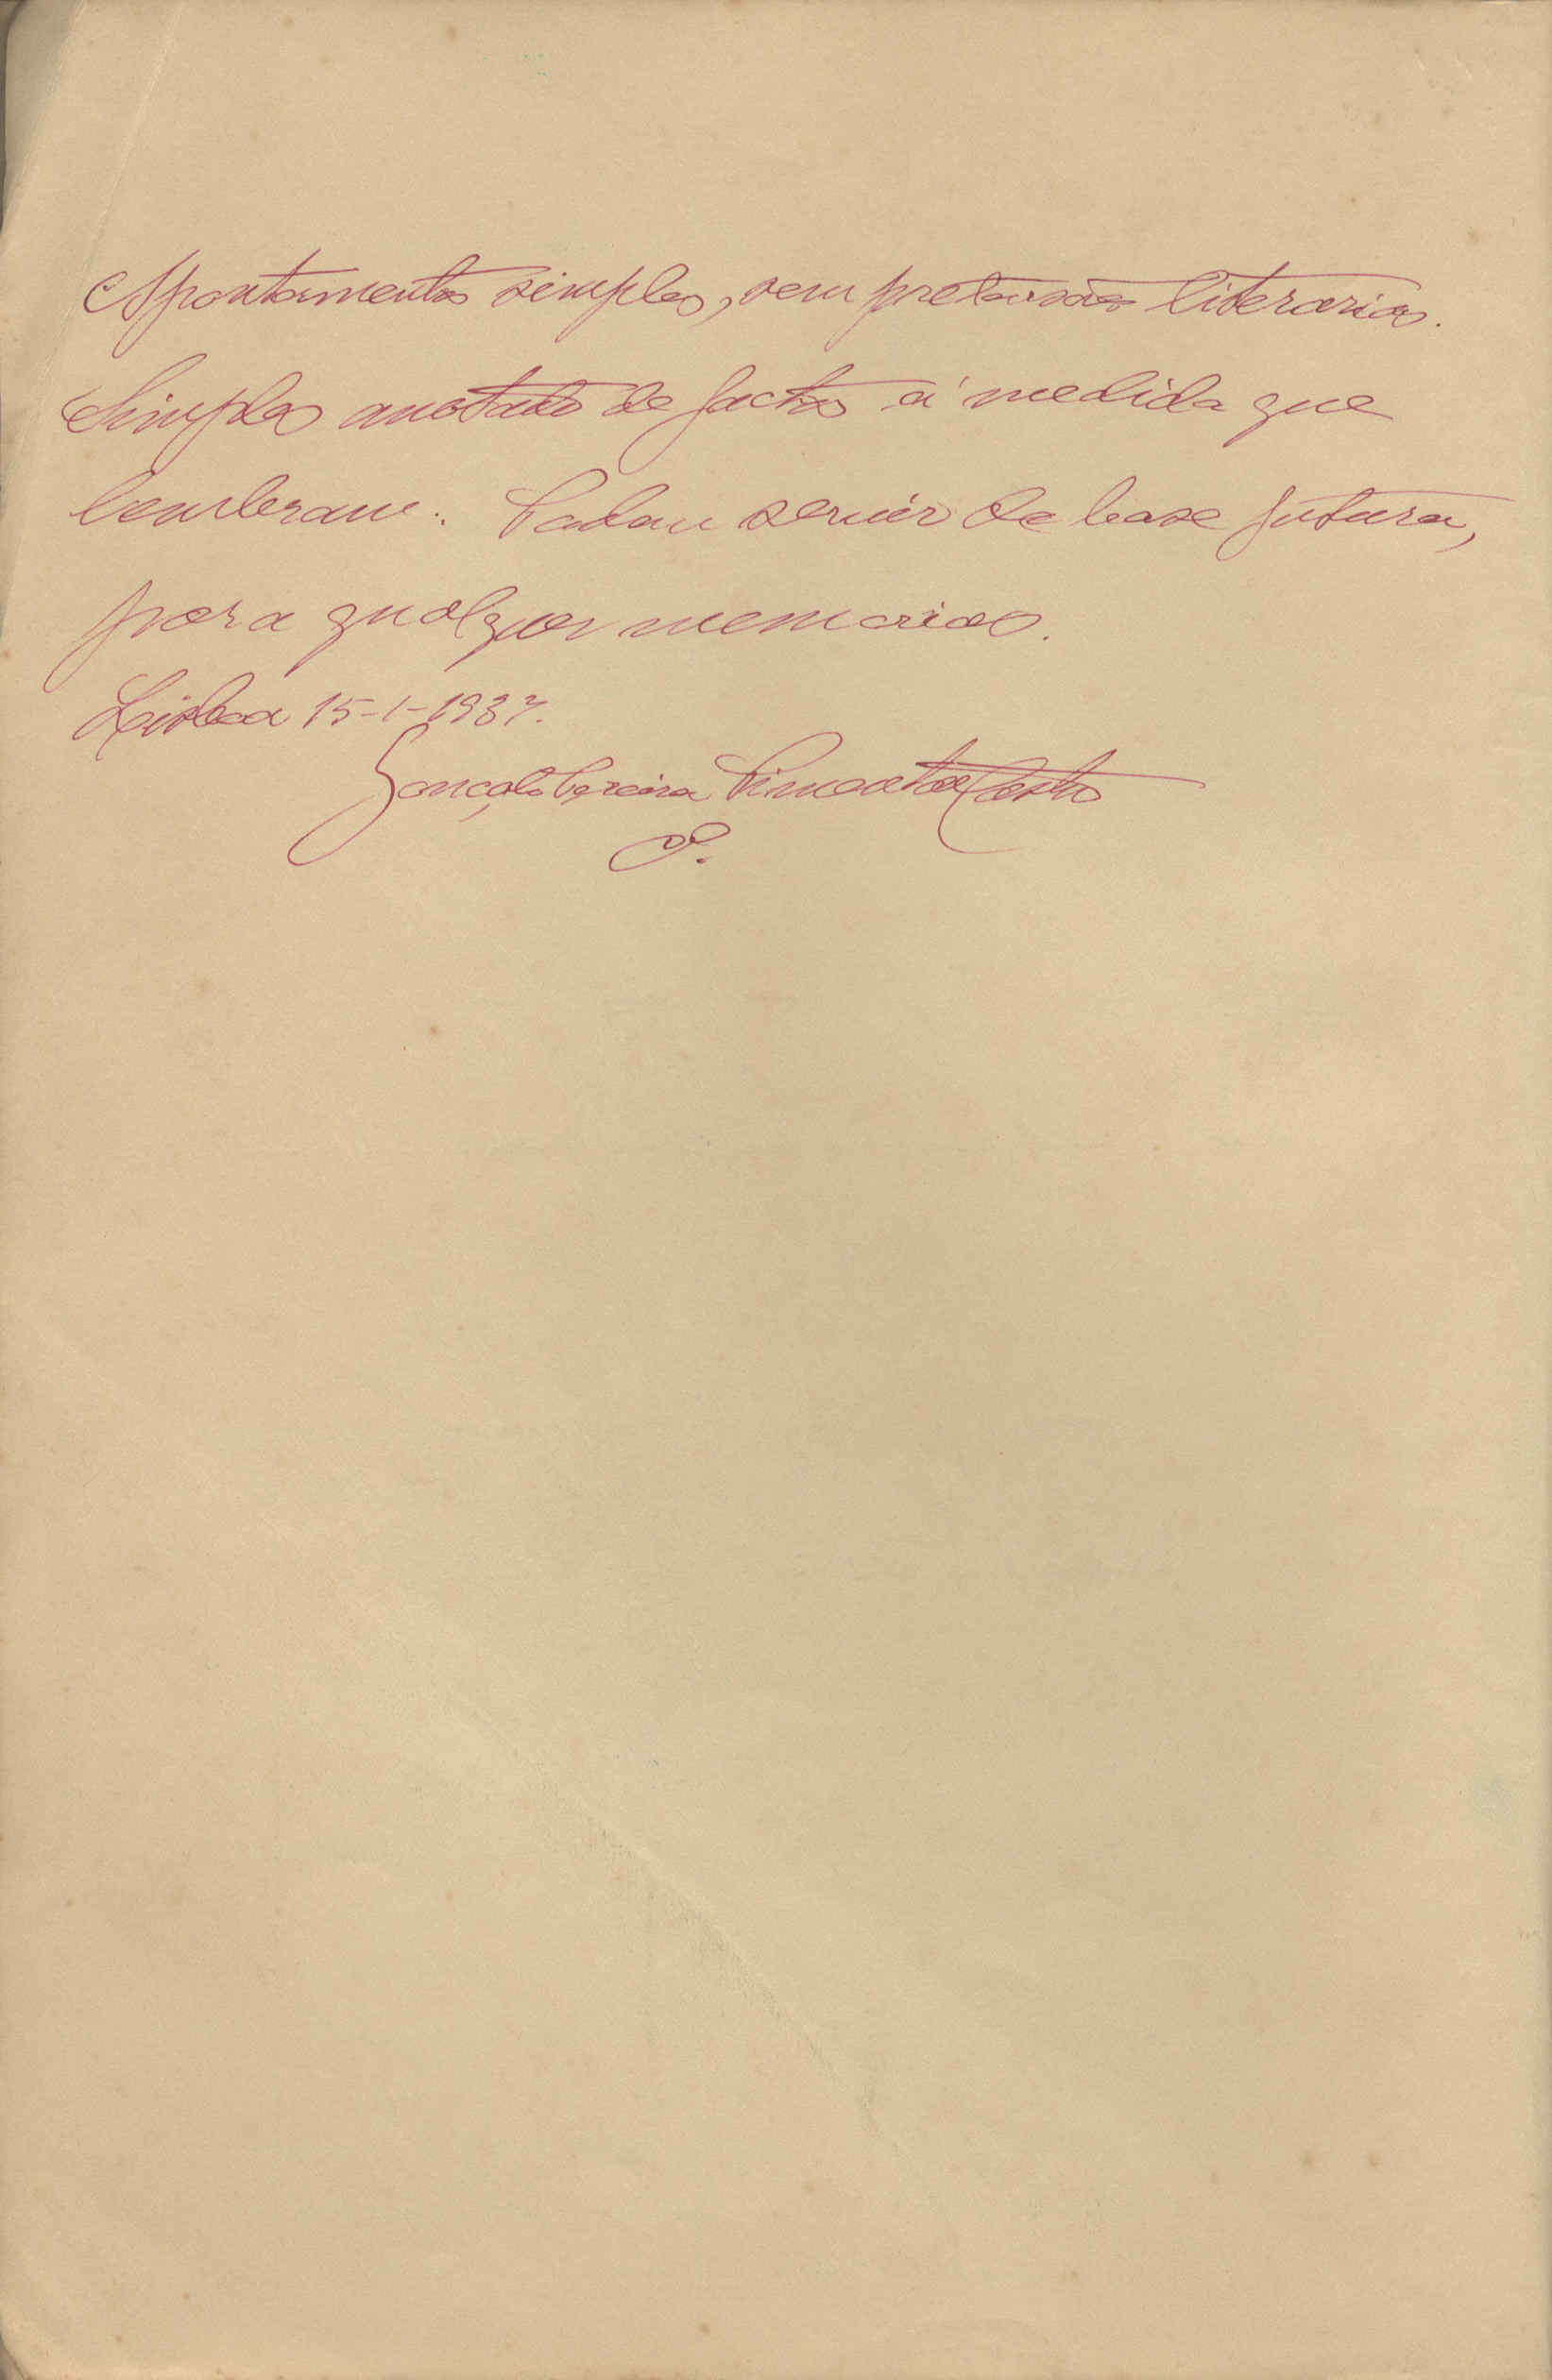 Apontamentos simples, sem pretensões literarias.
Simples de factos á medida que
lembram. Podem servir de base futura,
para qualquer memorias.
Lisboa 15-1-1937.
Gonçalo Pereira Pimenta de Castro